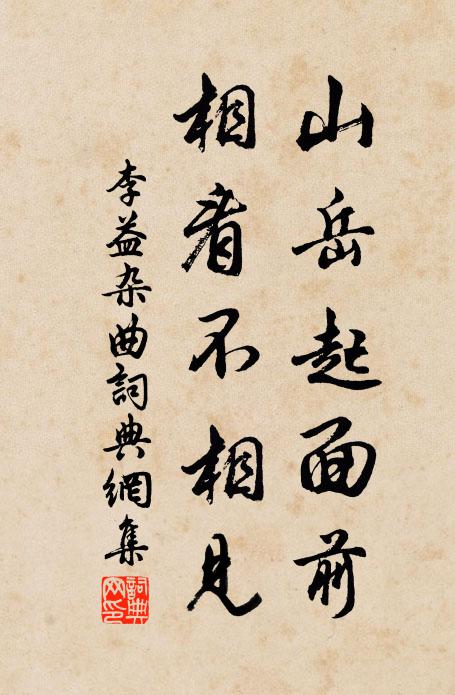 山岳起面前
相看不相見
李益杂曲詞典網集
詞典網印